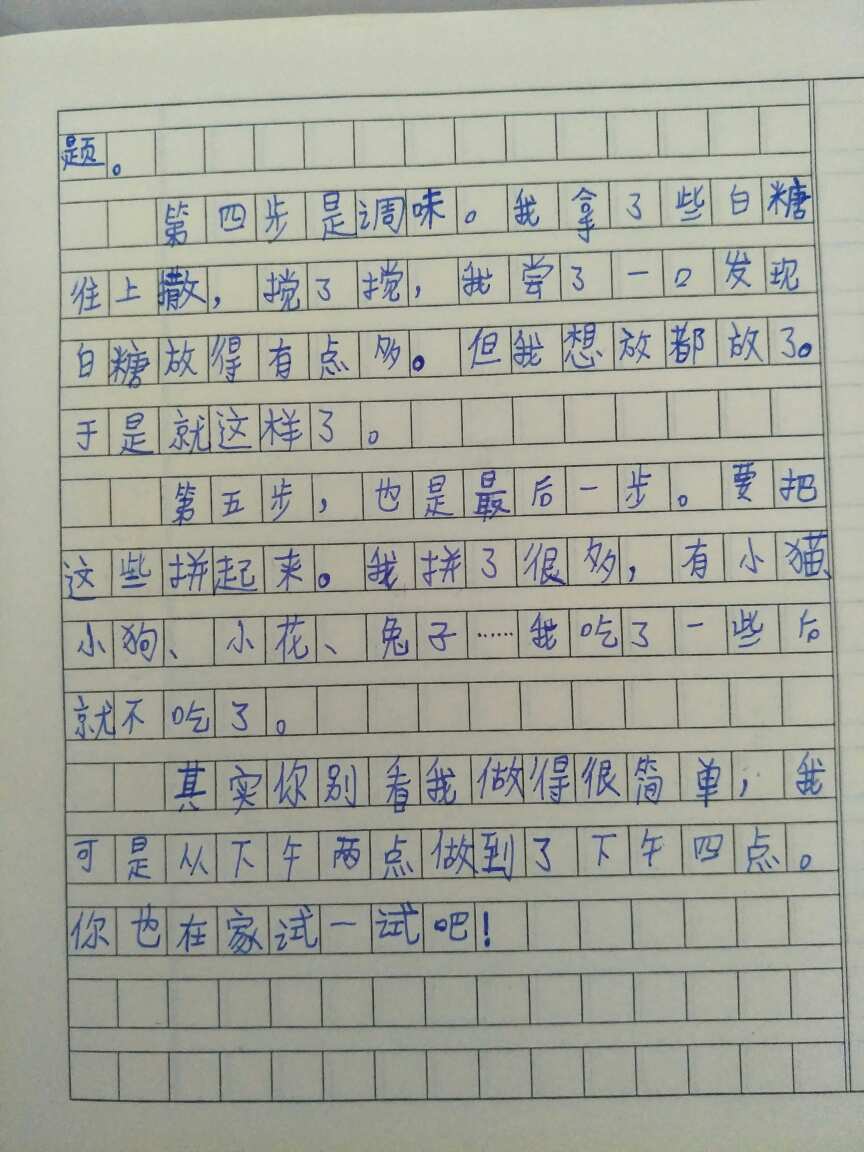 题。
第四步是调味。我拿了些白糖
往上撒，搅了搅，我尝了一口发现
白糖放得有点多。但我想放都放了。
于是就这样了。
第五步，也是最后一步。要把
这些拼起来。我拼了很多，有小猫、
小狗、小花、兔子……我吃了一些后
就不吃了。
其实你别看我做得很简单，我
可是从下午两点做到了下午四点。
你也在家试一试吧！